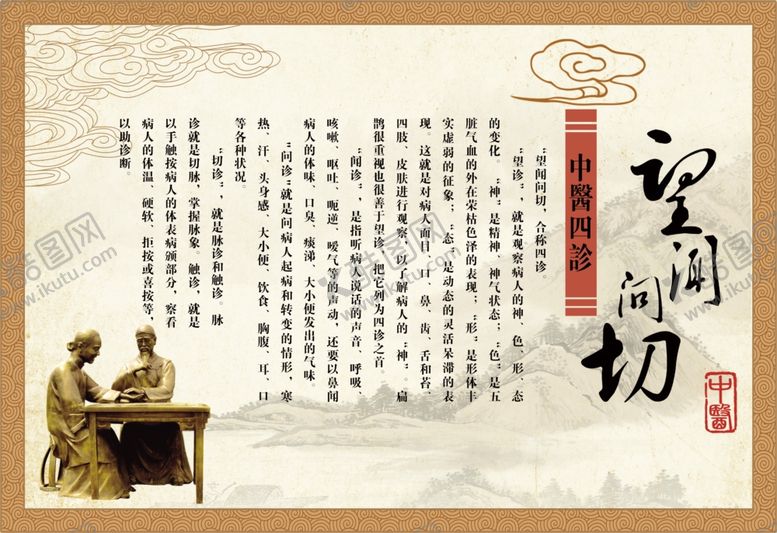 望闻问切
中醫
中醫四診
“望闻问切，合称四诊。
“望诊”，就是观察病人的神、色、形、态
的变化。“神”是精神、神气状态；“色”是五
脏气血的外在荣枯色泽的表现；“形”是形体丰
实虚弱的征象；“态”是动态的灵活呆滞的表
现。这就是对病人面目、口、鼻、齿、舌和苔、
四肢、皮肤进行观察，以了解病人的“神”。扁
鹊很重视也很善于望诊，把它列为四诊之首。
“闻诊”，是指听病人说话的声音、呼吸、
咳嗽、呕吐、呃逆、嗳气等的声动，还要以鼻闻
病人的体味、口臭、痰涕、大小便发出的气味。
“问诊”就是问病人起病和转变的情形，寒
热、汗、头身感、大小便、饮食、胸腹、耳、口
等各种状况。
“切诊”，就是脉诊和触诊 脉
诊就是切脉，掌握脉象。触诊，就是
以手触按病人的体表病颁部分，察看
病人的体温、硬软、拒按或喜按等，
以助诊断。
酷图网
www.ikutu.com